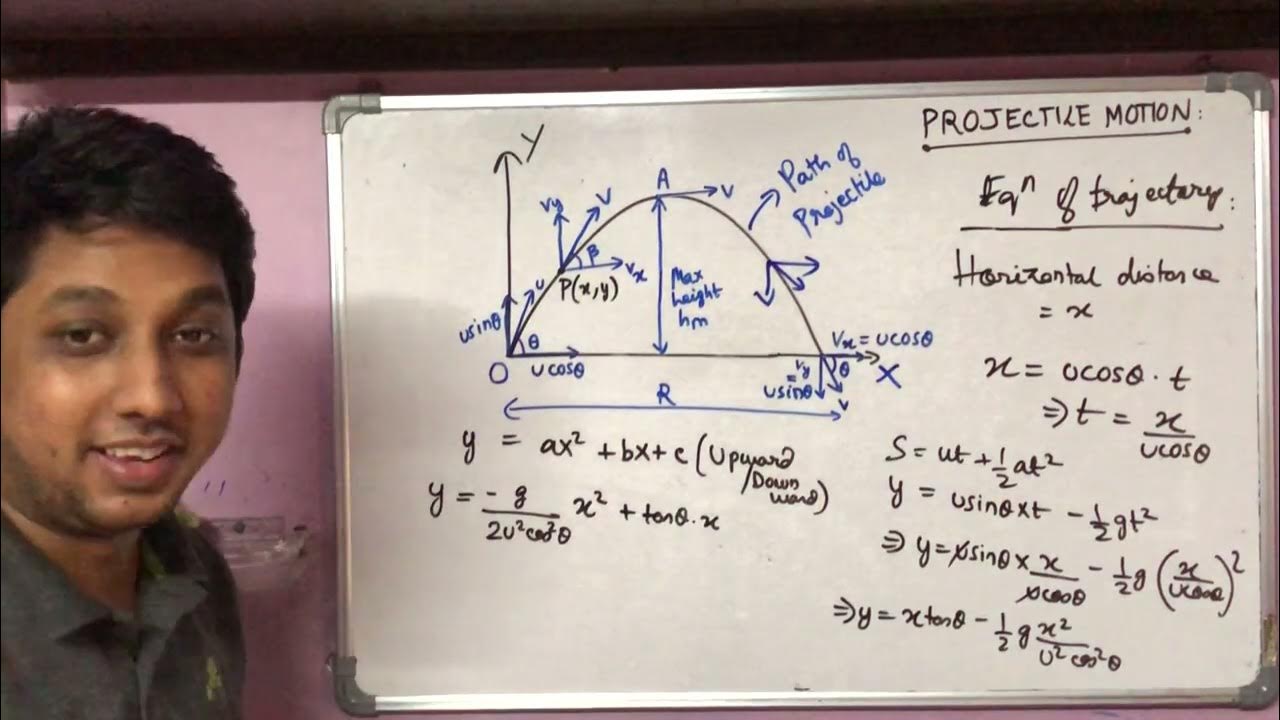 PROJECTILE MOTION:
Eqⁿ of trajectory:
Horizontal distance
= x
x = ucosθ · t
⇒ t = x/ucosθ
S = ut + 1/2 at²
y = usinθ × t - 1/2 gt²
⇒ y = usinθ × x/ucosθ - 1/2 g (x/ucosθ)²
⇒ y = x tanθ - 1/2 g x²/u² cos²θ
Y
A
V
Path of
Projectile
Vy
V
β
Vx
P(x,y)
u
usinθ
θ
O
ucosθ
Max
height
hm
Vx = ucosθ
Vy
=
usinθ
θ
V
X
R
y = ax² + bx + c (Upward
/Down
ward)
y = -g/2u²cos²θ x² + tanθ·x